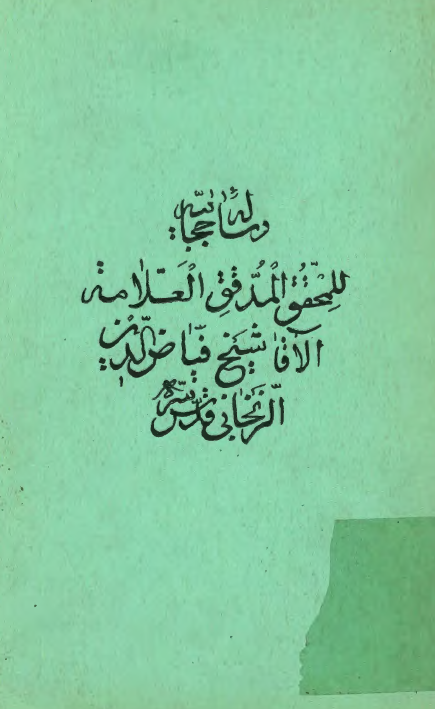 رسالة حجابیّه
للمحقّق المُدقّق العَلّامة
الآقا شیخ فیّاض الدّین
الزّنجانی قدّس سرّه